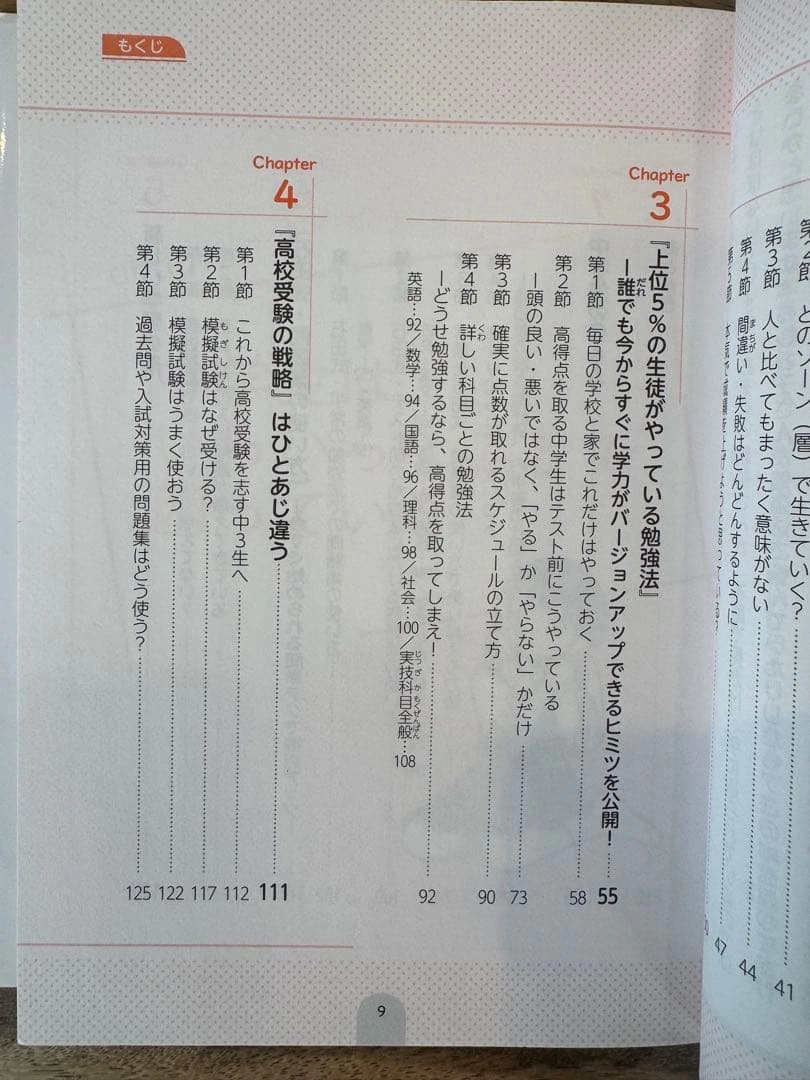 第3節 人と比べてもまったく意味がない
41
第4節 間違い・失敗はどんどんするように
44
47
もくじ
Chapter
3
『上位5%の生徒がやっている勉強法』
ー誰でも今からすぐに学力がバージョンアップできるヒミツを公開！ 55
第1節 毎日の学校と家でこれだけはやっておく 58
第2節 高得点を取る中学生はテスト前にこうやっている
ー頭の良い・悪いではなく、「やる」か「やらない」かだけ 73
第3節 確実に点数が取れるスケジュールの立て方 90
第4節 詳しい科目ごとの勉強法
ーどうせ勉強するなら、高得点を取ってしまえ！ 92
英語…92／数学…94／国語…96／理科…98／社会…100／実技科目全般…108
Chapter
4
『高校受験の戦略』はひとあじ違う 111
第1節 これから高校受験を志す中3生へ 112
第2節 模擬試験はなぜ受ける？ 117
第3節 模擬試験はうまく使おう 122
第4節 過去問や入試対策用の問題集はどう使う？ 125
9